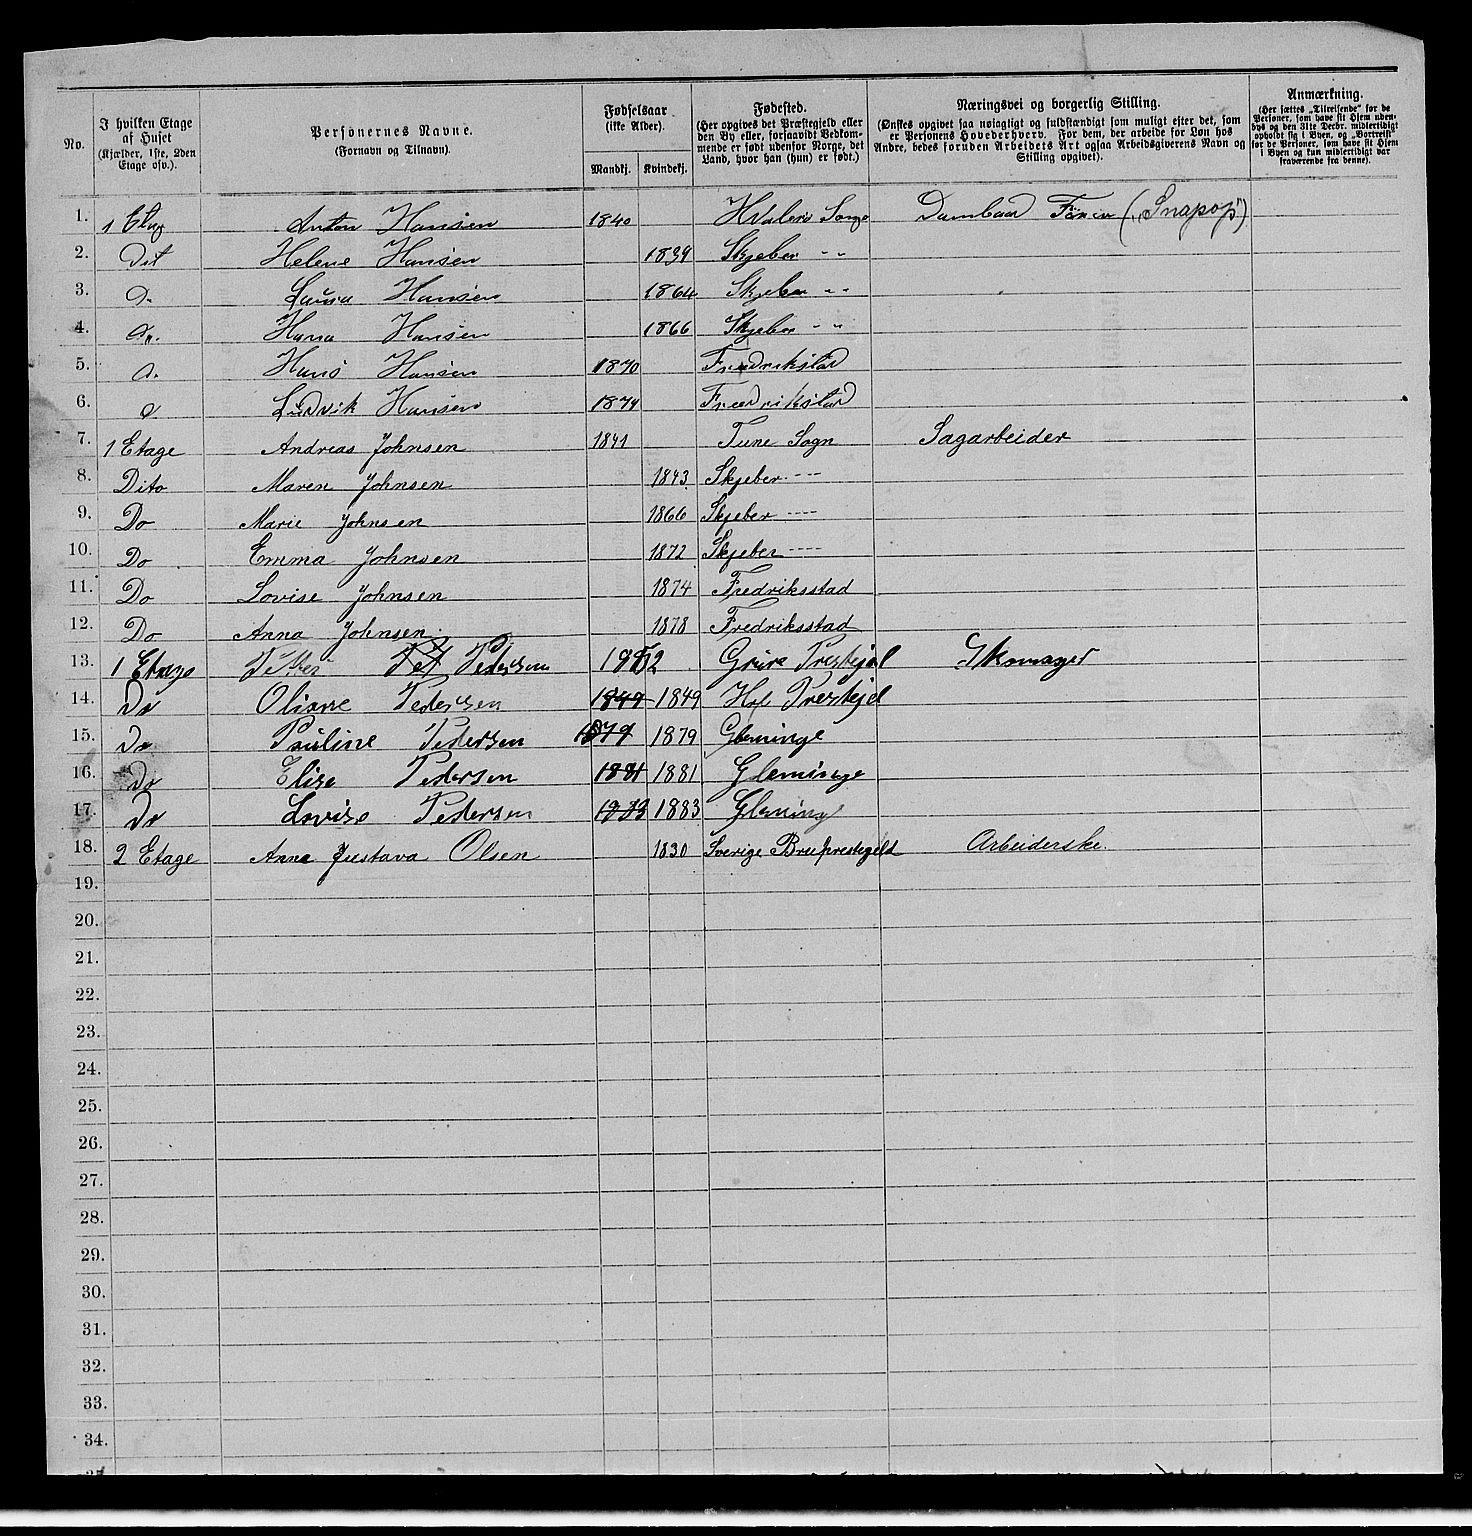 No.
I hvilken Etage af Huset (Kjælder, 1ste, 2den Etage osv.).
Personernes Navne. (Fornavn og Tilnavn).
Fødselsaar (ikke Alder).
Mandkj. Kvindekj.
Fødested. (Her opgives det Præstegjeld eller den By eller, forsaavidt Vedkommende er født udenfor Norge, det Land, hvor han (hun) er født.)
Næringsvei og borgerlig Stilling. (Ønskes opgivet saa nøiagtigt og fuldstændigt som muligt efter det, som er Personens Hovederhverv. For dem, der arbeide for Løn hos Andre, bedes foruden Arbeidets Art ogsaa Arbeidsgiverens Navn og Stilling opgivet).
Anmærkning. (Her sættes „Tilreisende" for de Personer, som have sit Hjem udenbys og den 31te Decbr. midlertidigt opholdt sig i Byen, og „Bortreist" for de Personer, som have sit Hjem i Byen og kun midlertidigt var fraværende fra denne).
1. 1 Etag Anton Hansen 1840 Hvalers Songe Dambaad Fører („Snapop")
2. Dit Helene Hansen 1839 Skjeber " "
3. D. Laura Hansen 1864 Skjeber " "
4. Do. Hana Hansen 1866 Skjeber " "
5. D. Hans Hansen 1870 Fredrikstad
6. D Ludvik Hansen 1874 Fredrikstad
7. 1 Etage Andreas Johnsen 1841 Tune Sogn Sagarbeider
8. Dito Maren Johnsen 1843 Skjeber ----
9. Do Marie Johnsen 1866 Skjeber ----
10. Do Emma Johnsen 1872 Skjeber ----
11. Do Lovise Johnsen 1874 Fredriksstad
12. Do Anna Johnsen. 1878 Fredriksstad
13. 1 Etage Pedersen Prestejel Skomager
14. Do Oliane Pedersen 1849 1849 Hol Prestejel
15. Do Pauline Pedersen 1879 1879 Gleminge
16. Do Elise Pedersen 1881 1881 Gleminge
17. Do Lovise Pedersen 1883 1883 Gleming
18. 2 Etage Anna Gustava Olsen 1830 Sverige Bruprestegeld Arbeiderske.
19.
20.
21.
22.
23.
24.
25.
26.
27.
28.
29.
30.
31.
32.
33.
34.